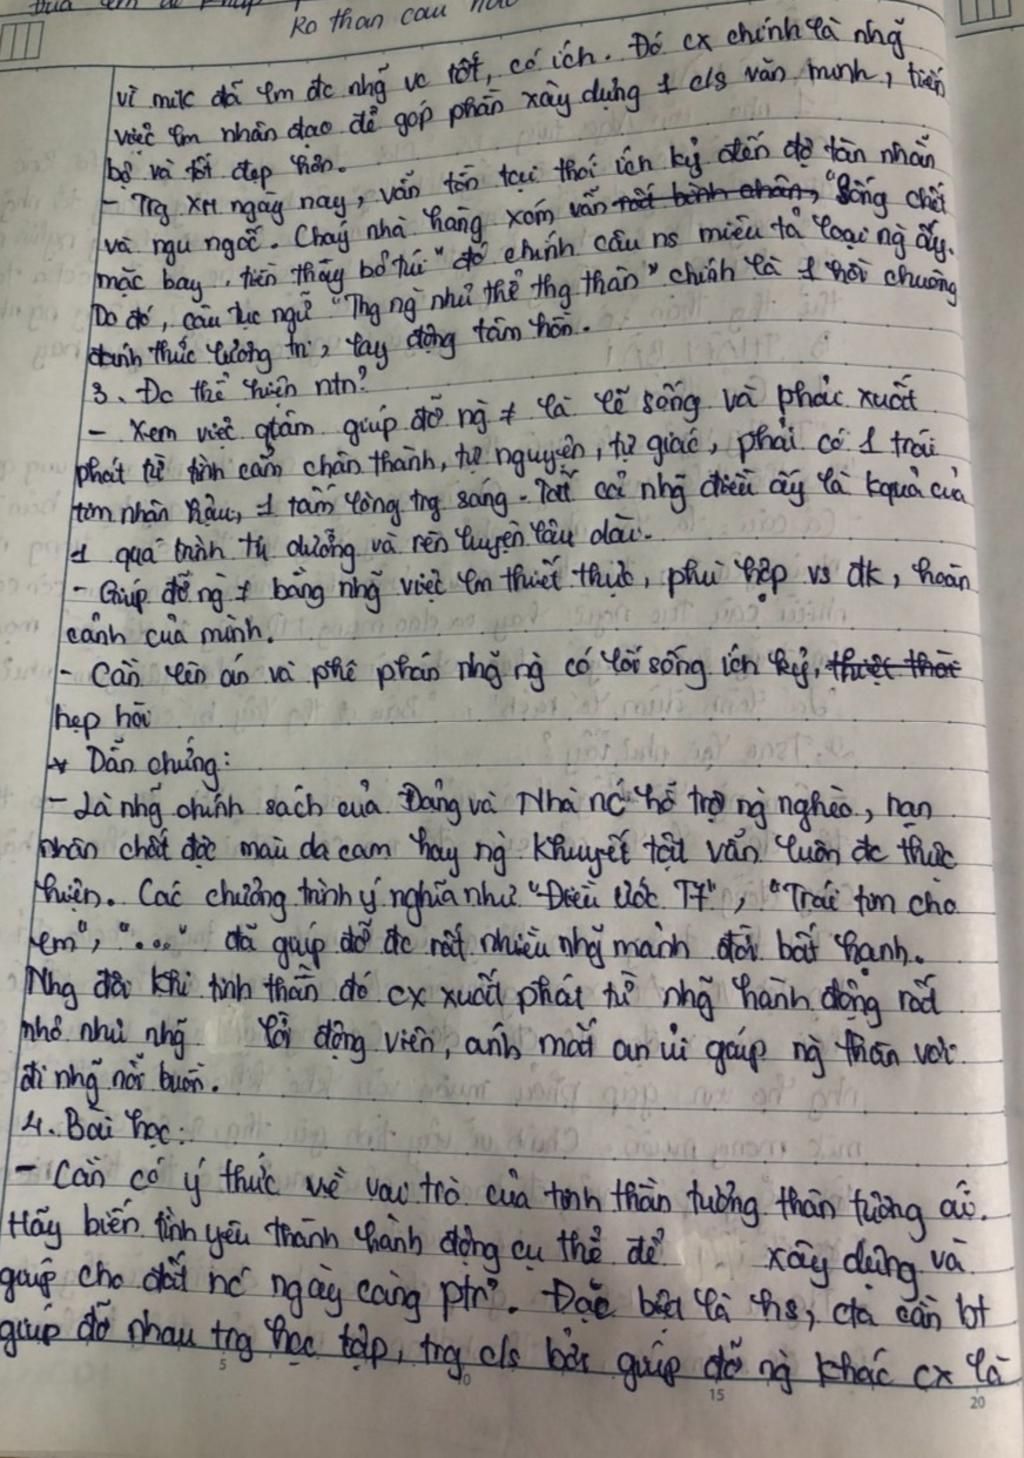 Ko than cau
vì mik đã lm đc nhg̃ vc tốt, có ích. Đó cx chính là nhg̃
việc lm nhân đạo để góp phần xây dựng 1 c/s văn minh, tiến
bộ và tốt đẹp hơn.
- Trg XH ngày nay, vẫn tồn tại thói ích kỷ đến độ tàn nhẫn
và ngu ngốc. Cháy nhà hàng xóm vẫn rất bình chân, "Sống chết
mặc bay, tiền thầy bỏ túi" đó chính câu ns miêu tả loại ng̀ ấy.
Do đó, câu tục ngữ "Thg ng̀ như thể thg thân" chính là 1 hồi chuông
đánh thức lương tri, lay động tâm hồn.
3. Đc thể hiện ntn?
- Xem việc qtâm giúp đỡ ng̀ ≠ là lẽ sống và phải xuất
phát từ tình cảm chân thành, tự nguyện, tự giác, phải có 1 trái
tim nhân hậu, 1 tấm lòng trg sáng. Tất cả nhg̃ điều ấy là kquả của
1 quá trình tu dưỡng và rèn luyện lâu dài.
- Giúp đỡ ng̀ ≠ bằng nhg̃ việc lm thiết thực, phù hợp vs đk, hoàn
cảnh của mình.
- Cần lên án và phê phán nhg̃ ng̀ có lối sống ích kỷ, thiệt thòi
hẹp hòi
* Dẫn chứng:
- Là nhg̃ chính sách của Đảng và Nhà nc' hỗ trợ ng̀ nghèo, nạn
nhân chất độc màu da cam hay ng̀ khuyết tật vẫn luôn đc thực
hiện. Các chương trình ý nghĩa như "Điều ước T7", "Trái tim cho
em", "..." đã giúp đỡ đc rất nhiều nhg̃ mảnh đời bất hạnh.
Nhg đôi khi tinh thần đó cx xuất phát từ nhg̃ hành động rất
nhỏ như nhg̃ lời động viên, ánh mắt an ủi giúp ng̀ thân vơi
đi nhg̃ nỗi buồn.
4. Bài học:
- Cần có ý thức về vai trò của tinh thần tương thân tương ái.
Hãy biến tình yêu thành hành động cụ thể để xây dựng và
giúp cho đất nc' ngày càng ptr'. Đặc biệt là hs, cta cần bt
giúp đỡ nhau trg học tập, trg c/s bởi giúp đỡ ng̀ khác cx là
5 10 15 20